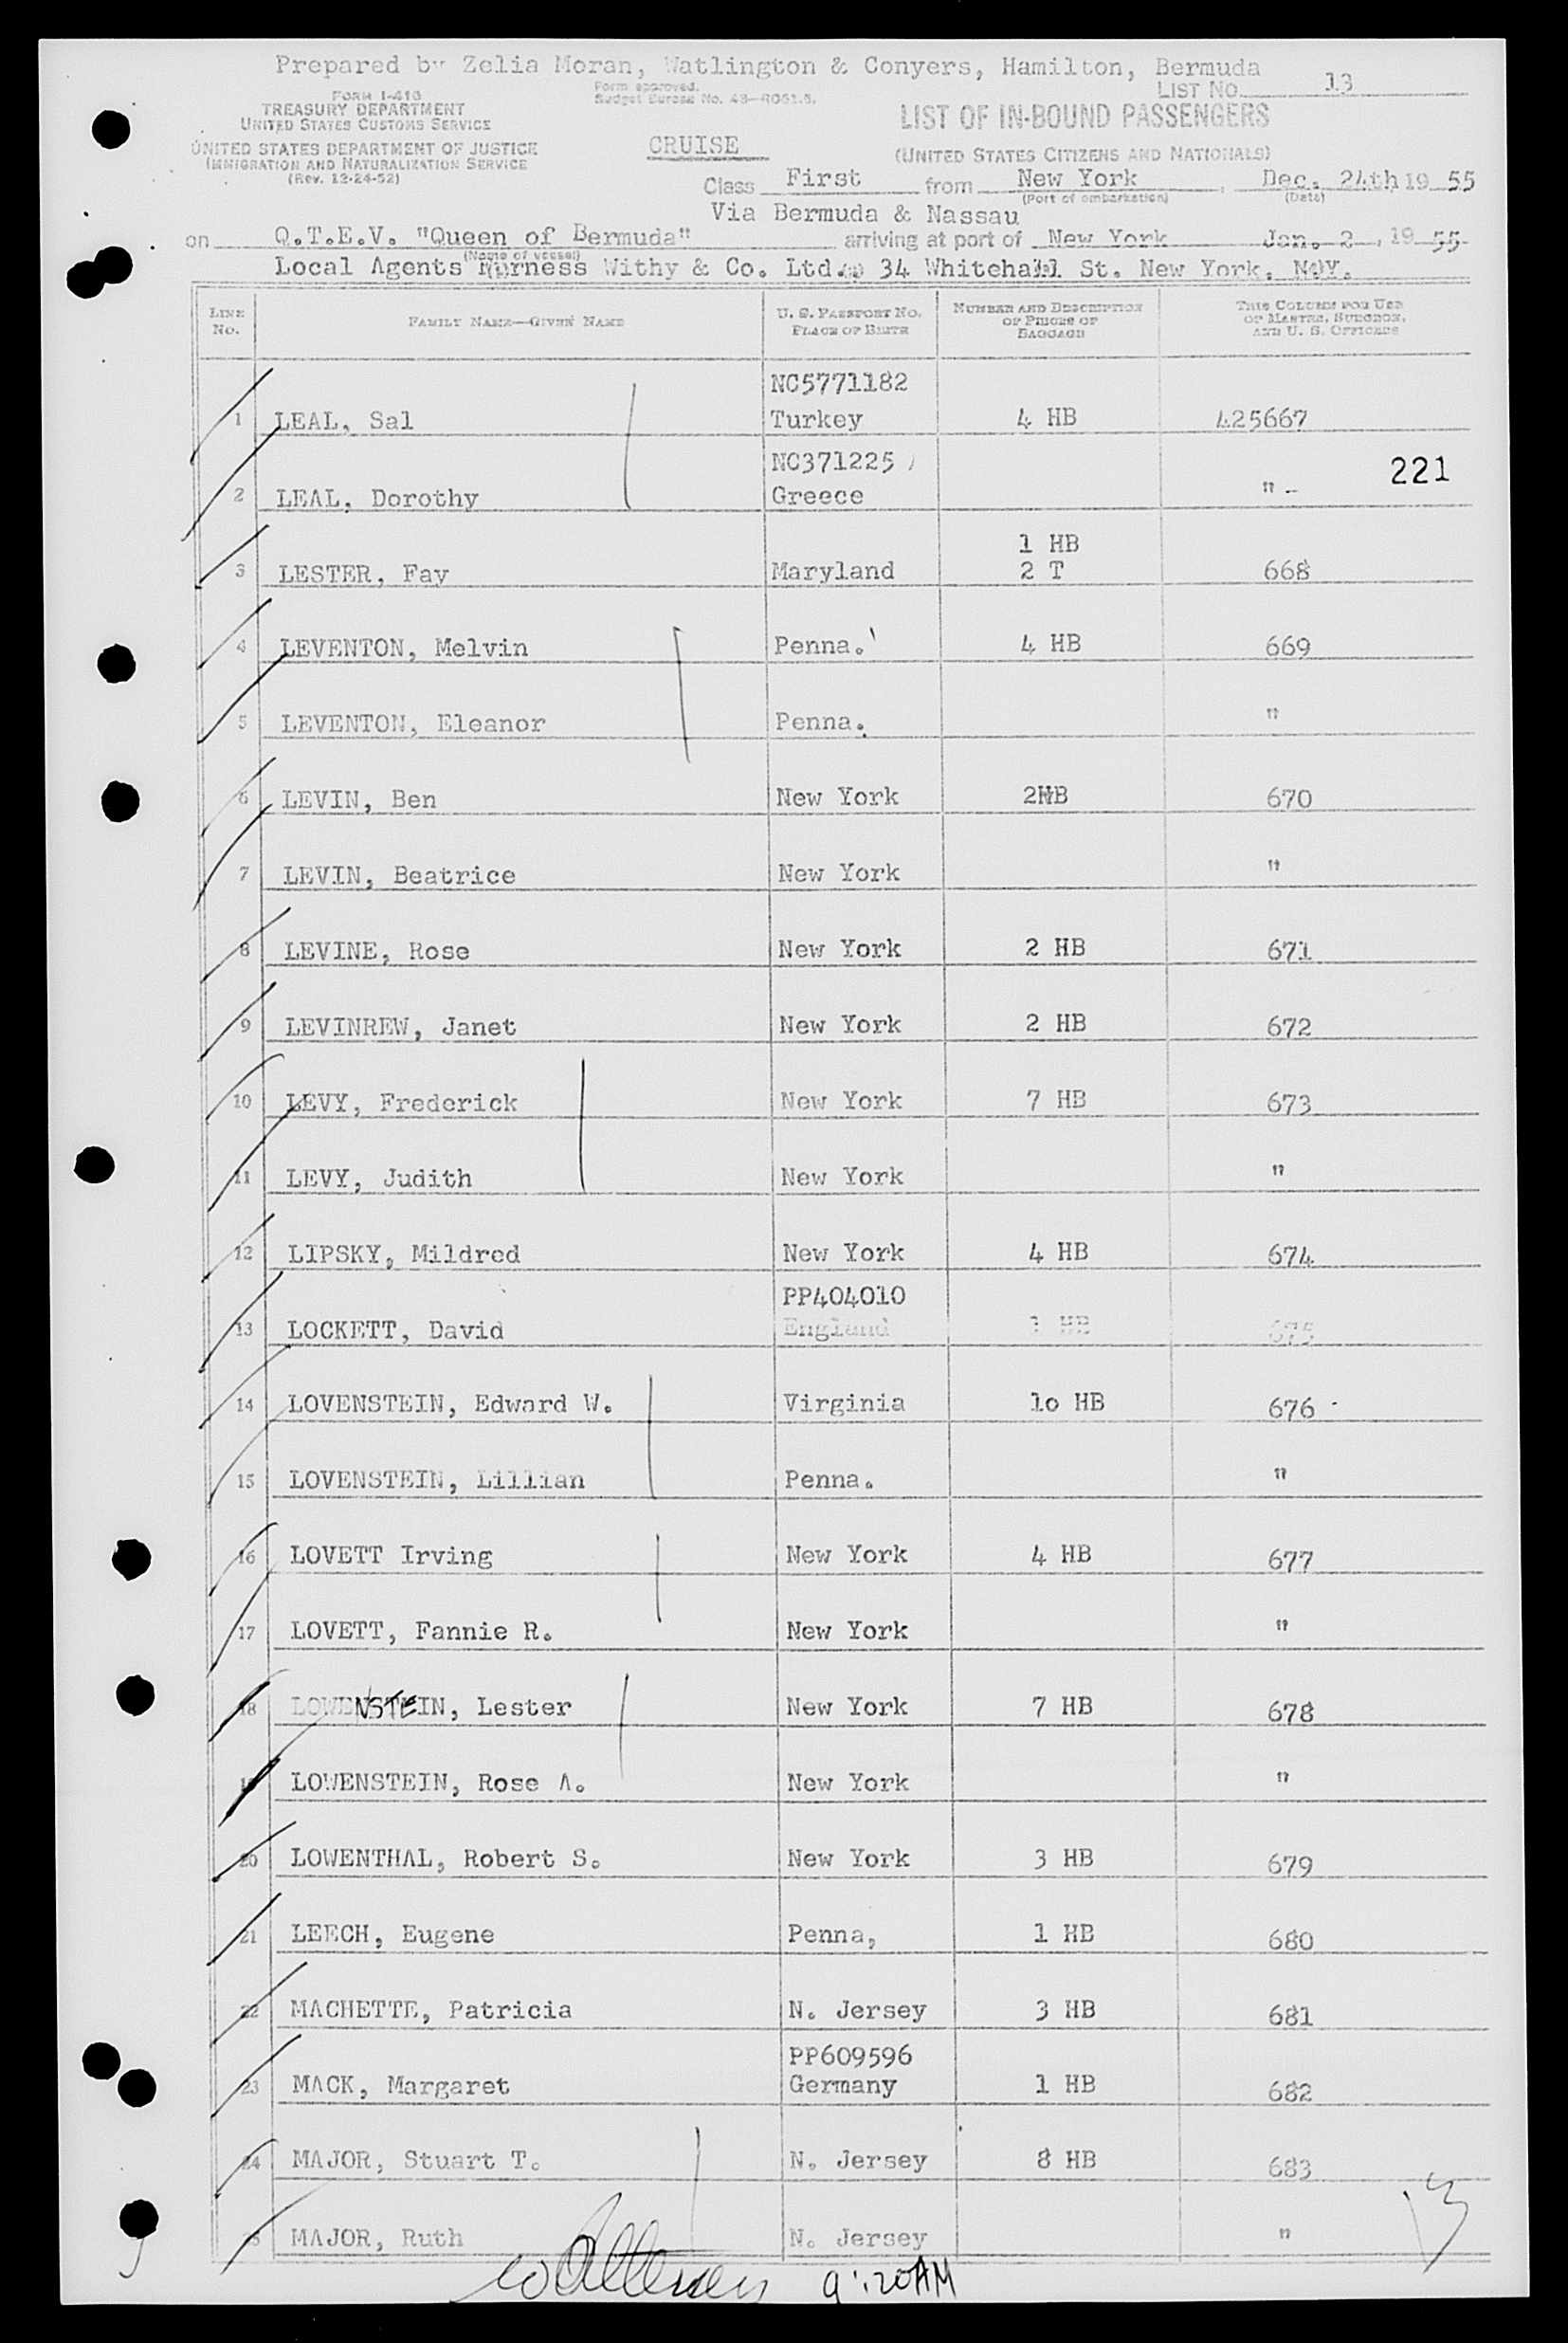 Prepared by Zelia Moran, Watlington & Conyers, Hamilton, Bermuda
FORM I-418
TREASURY DEPARTMENT
UNITED STATES CUSTOMS SERVICE
UNITED STATES DEPARTMENT OF JUSTICE
IMMIGRATION AND NATURALIZATION SERVICE
(Rev. 12-24-52)
Form approved.
Budget Bureau No. 43-R061.5.
LIST No. 13
LIST OF IN-BOUND PASSENGERS
(UNITED STATES CITIZENS AND NATIONALS)
CRUISE
Class First from New York, Dec. 24th 19 55
(Port of embarkation) (Date)
Via Bermuda & Nassau
on Q.T.E.V. "Queen of Bermuda" arriving at port of New York Jan. 2, 19 55
(Name of vessel)
Local Agents Furness Withy & Co. Ltd. 34 Whitehall St. New York, N.Y.
LINE No. FAMILY NAME—GIVEN NAME U. S. PASSPORT No. PLACE OF BIRTH NUMBER AND DESCRIPTION OF PIECES OF BAGGAGE THIS COLUMN FOR USE OF MASTER, SURGEON, AND U. S. OFFICERS
NC5771182
1 LEAL, Sal Turkey 4 HB 425667
NC371225
221
2 LEAL, Dorothy Greece " -
1 HB
3 LESTER, Fay Maryland 2 T 668
4 LEVENTON, Melvin Penna. 4 HB 669
5 LEVENTON, Eleanor Penna. "
6 LEVIN, Ben New York 2HB 670
7 LEVIN, Beatrice New York "
8 LEVINE, Rose New York 2 HB 671
9 LEVINREW, Janet New York 2 HB 672
10 LEVY, Frederick New York 7 HB 673
11 LEVY, Judith New York "
12 LIPSKY, Mildred New York 4 HB 674
PP404010
13 LOCKETT, David England 1 HB 675
14 LOVENSTEIN, Edward W. Virginia 10 HB 676 -
15 LOVENSTEIN, Lillian Penna. "
16 LOVETT Irving New York 4 HB 677
17 LOVETT, Fannie R. New York "
18 LOWENSTEIN, Lester New York 7 HB 678
19 LOWENSTEIN, Rose A. New York "
20 LOWENTHAL, Robert S. New York 3 HB 679
21 LEECH, Eugene Penna, 1 HB 680
22 MACHETTE, Patricia N. Jersey 3 HB 681
PP609596
23 MACK, Margaret Germany 1 HB 682
24 MAJOR, Stuart T. N. Jersey 8 HB 683
13
25 MAJOR, Ruth N. Jersey "
9:20 AM